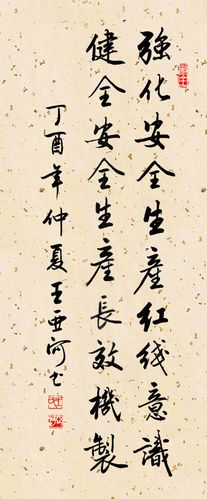 強化安全生產紅綫意識
健全安全生產長效機製
丁酉年仲夏王亚河书